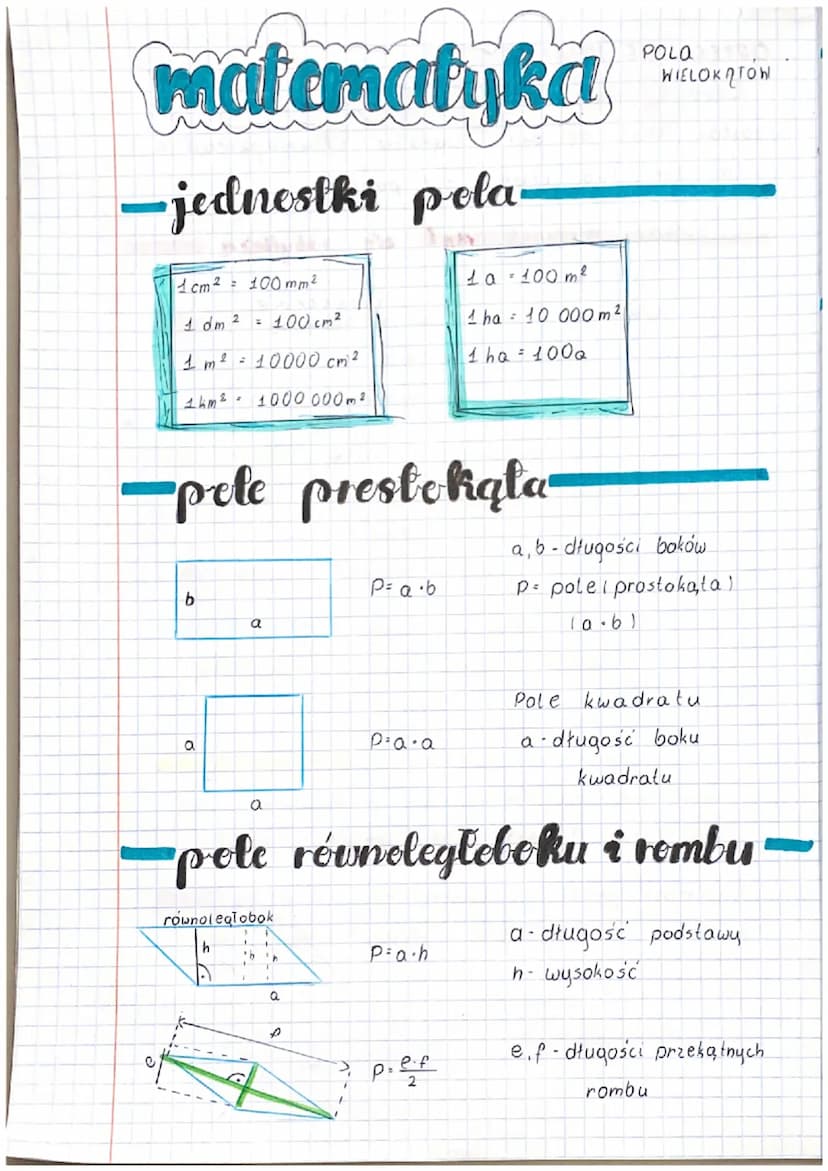 matematyka
POLA
WIELOKĄTÓW
jednostki pola
1 cm² = 100 mm²
1 dm² = 100 cm²
1 m² = 10000 cm²
1 km² = 1000 000 m²
1 a = 100 m²
1 ha = 10 000 m²
1 ha = 100a
pole prestokąta
a, b - długości boków
b
P= a·b
P= pole (prostokąta)
a
(a·b)
Pole kwadratu
a
P=a·a
a - długość boku
kwadratu
a
pole równoległoboku i rombu
równoległobok
h h h
P=a·h
a - długość podstawy
h - wysokość
a
f
e
P= e·f/2
e, f - długości przekątnych
rombu